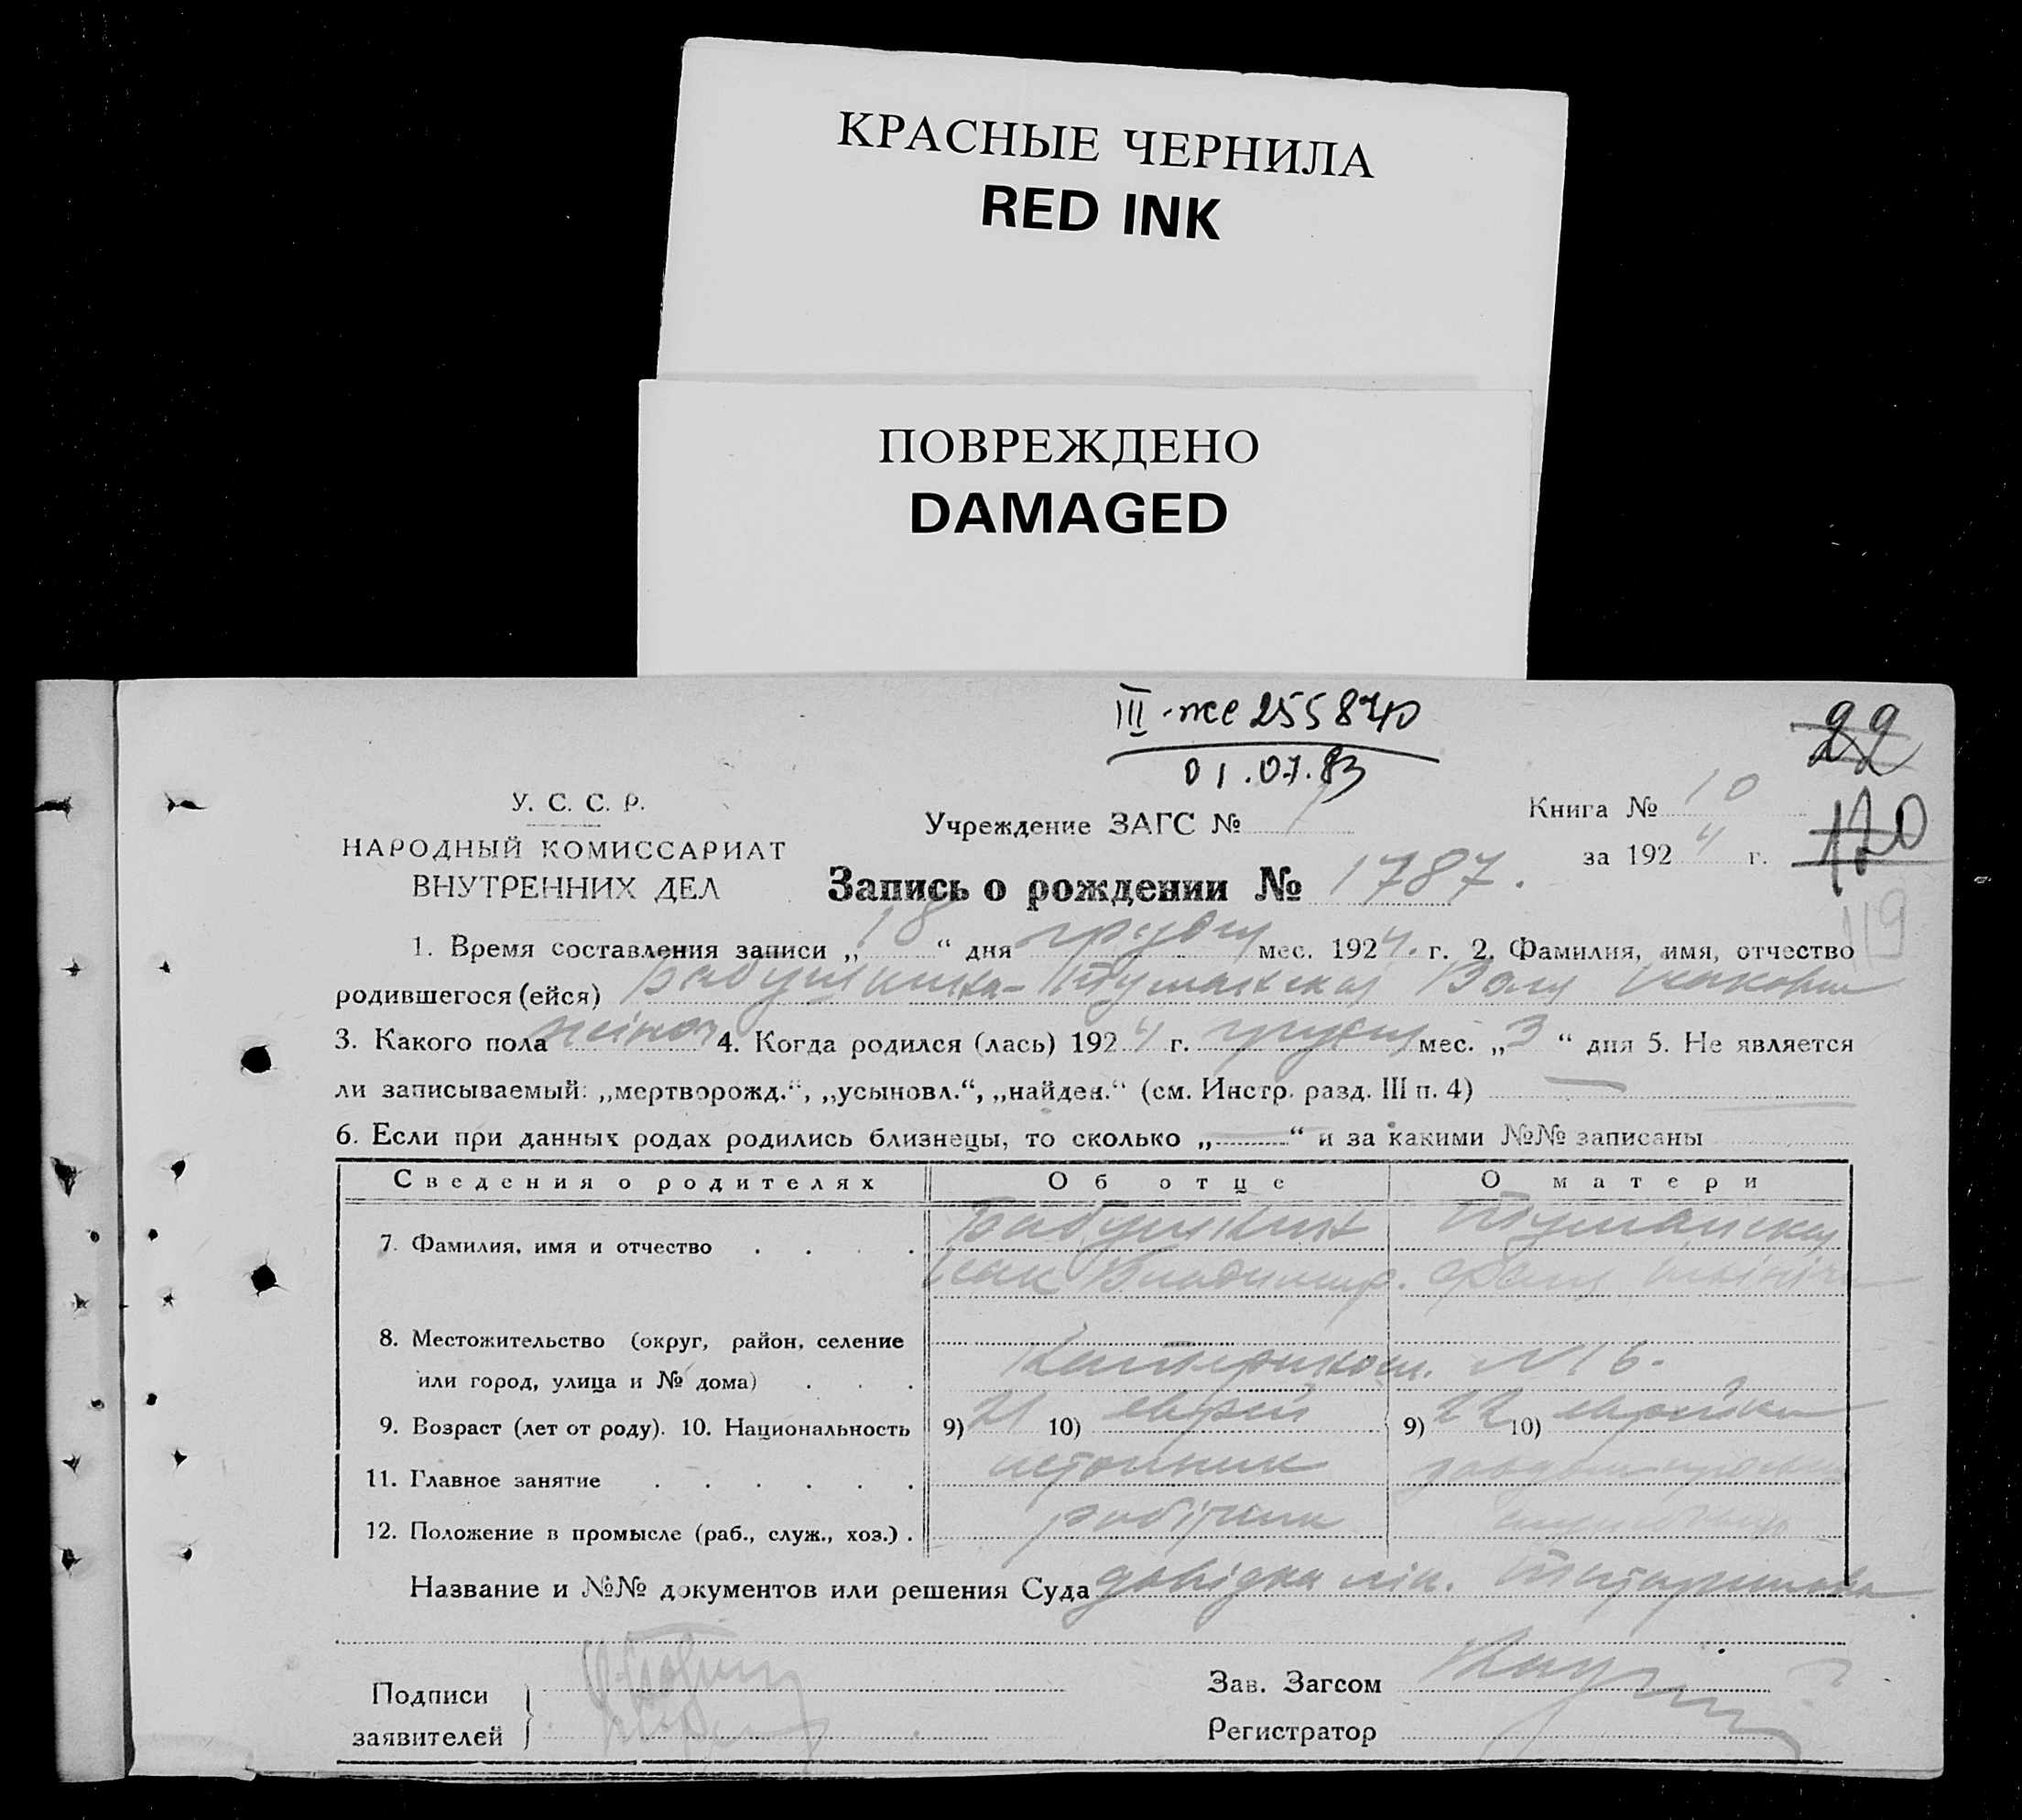 КРАСНЫЕ ЧЕРНИЛА
RED INK
ПОВРЕЖДЕНО
DAMAGED
III-же 255840
01.07.83
22
У. С. С. Р.
НАРОДНЫЙ КОМИССАРИАТ
ВНУТРЕННИХ ДЕЛ
Учреждение ЗАГС №
Книга № 10
за 1924 г.
120
119
Запись о рождении № 1787.
1. Время составления записи „18“ дня грудня мес. 1924. г. 2. Фамилия, имя, отчество
родившегося (ейся) Бабушкина-Туманская
3. Какого пола жіноч 4. Когда родился (лась) 1924 г. грудня мес. „3“ дня 5. Не является
ли записываемый: „мертворожд.“, „усыновл.“, „найден.“ (см. Инстр. разд. III п. 4) —
6. Если при данных родах родились близнецы, то сколько „—“ и за какими №№ записаны
Сведения о родителях Об отце О матери
7. Фамилия, имя и отчество Бабушкин Туманская
Ісак Владимир.
8. Местожительство (округ, район, селение
или город, улица и № дома) N 16.
9. Возраст (лет от роду). 10. Национальность 9) 21 10) еврей 9) 22 10) еврейка
11. Главное занятие
12. Положение в промысле (раб., служ., хоз.) робітник
Название и №№ документов или решения Суда довідка лік.
Подписи
заявителей
Зав. Загсом
Регистратор